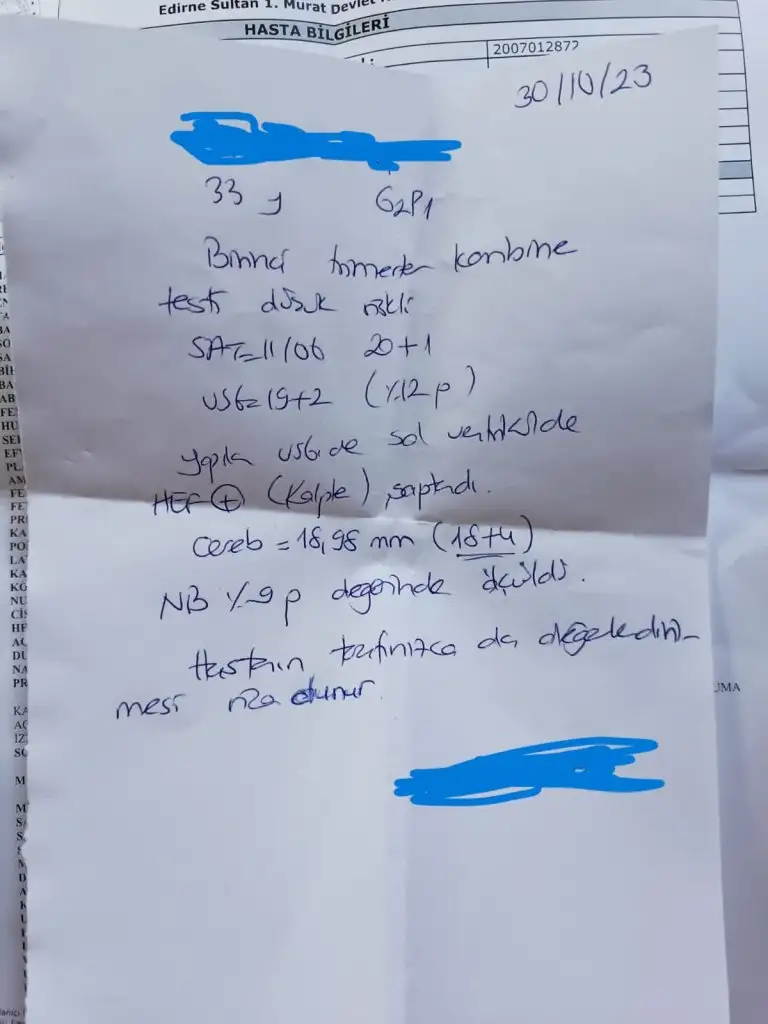 Edirne Sultan 1. Murat Devlet
HASTA BİLGİLERİ
2007012872
30/10/23
33 y G2P1
Birinci trimester kombine
testi düşük riskli
SAT=11/06 20+1
USG=19+2 (%12p)
yapılan USG'de sol ventrikülde
HEF ⊕ (Kalpte) saptandı.
Cereb = 18,98 mm (18+4)
NB %9 p değerinde ölçüldü.
Hastanın tarafınızca da değerlendiril-
mesi rica olunur.
UMA